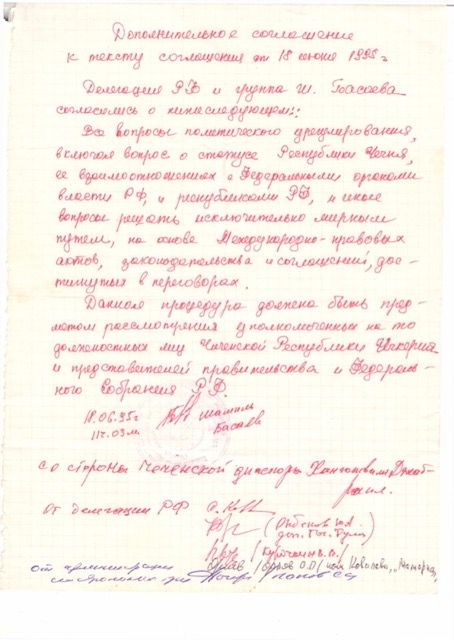 Дополнительное соглашение
к тексту соглашения от 18 июня 1995 г
Делегация РФ и группа Ш. Басаева
согласились о нижеследующем:
Все вопросы политического урегулирования,
включая вопрос о статусе Республики Чечня,
ее взаимоотношениях с Федеральными органами
власти РФ, и республиками РФ, и иные
вопросы решать исключительно мирным
путем, на основе Международно-правовых
актов, законодательства и соглашений, дос-
тигнутых в переговорах.
Данная процедура должна быть пред-
метом рассмотрения уполномоченных на то
должностных лиц Чеченской Республики Ичкерия
и представителей правительства и Федераль-
ного Собрания РФ.
18.06.95г Шамиль
11ч.03м. Басаев
со стороны Чеченской диаспоры
От делегации РФ
(Рыбаков Ю.А.
деп. Гос. Думы)
/Курочкин В.О./
от администрации